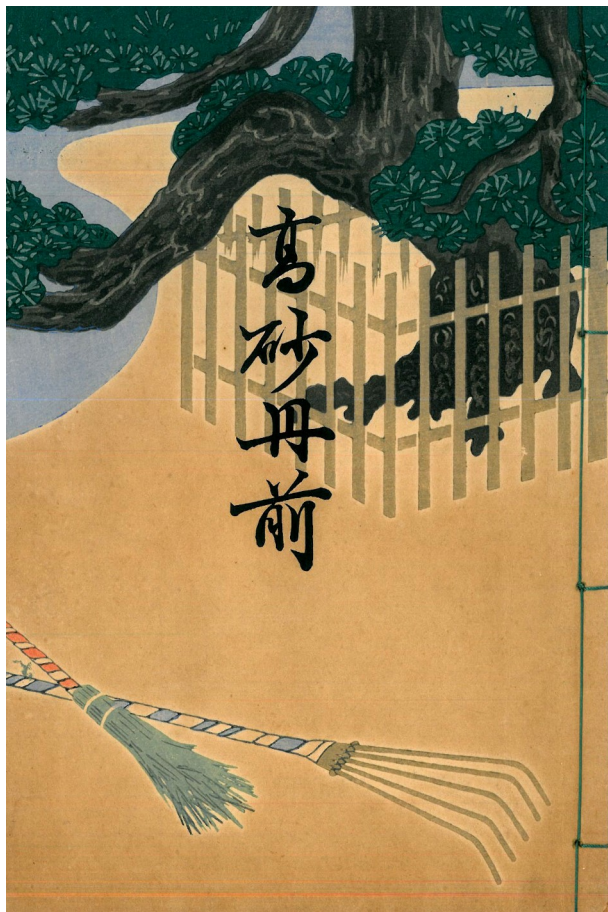 高砂丹前